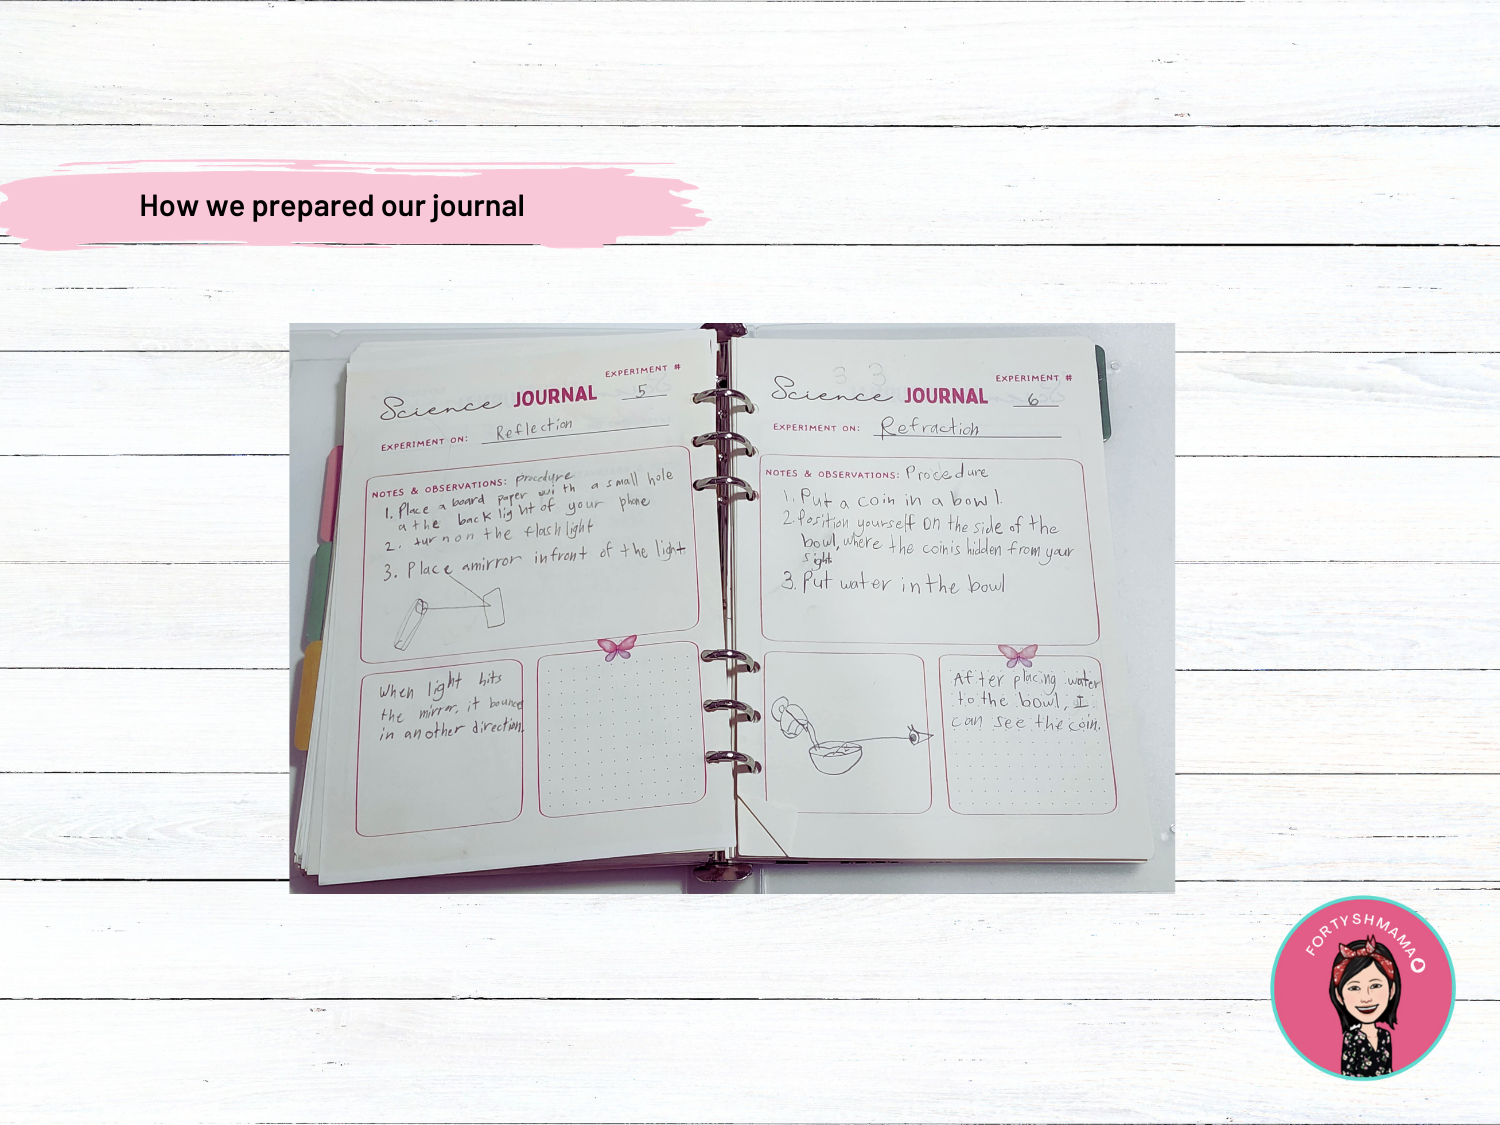 How we prepared our journal
EXPERIMENT #
Science JOURNAL 5
EXPERIMENT ON: Reflection
NOTES & OBSERVATIONS: Procedure
1. Place a board paper with a small hole
a the back light of your phone
2. turn on the flashlight
3. Place amirror infront of the light
When light hits
the mirror, it bounces
in another direction.
EXPERIMENT #
Science JOURNAL 6
EXPERIMENT ON: Refraction
NOTES & OBSERVATIONS: Procedure
1. Put a coin in a bowl.
2. Position yourself on the side of the
bowl, where the coin is hidden from your
sight
3. Put water in the bowl
After placing water
to the bowl, I
can see the coin.
FORTYSHMAMA